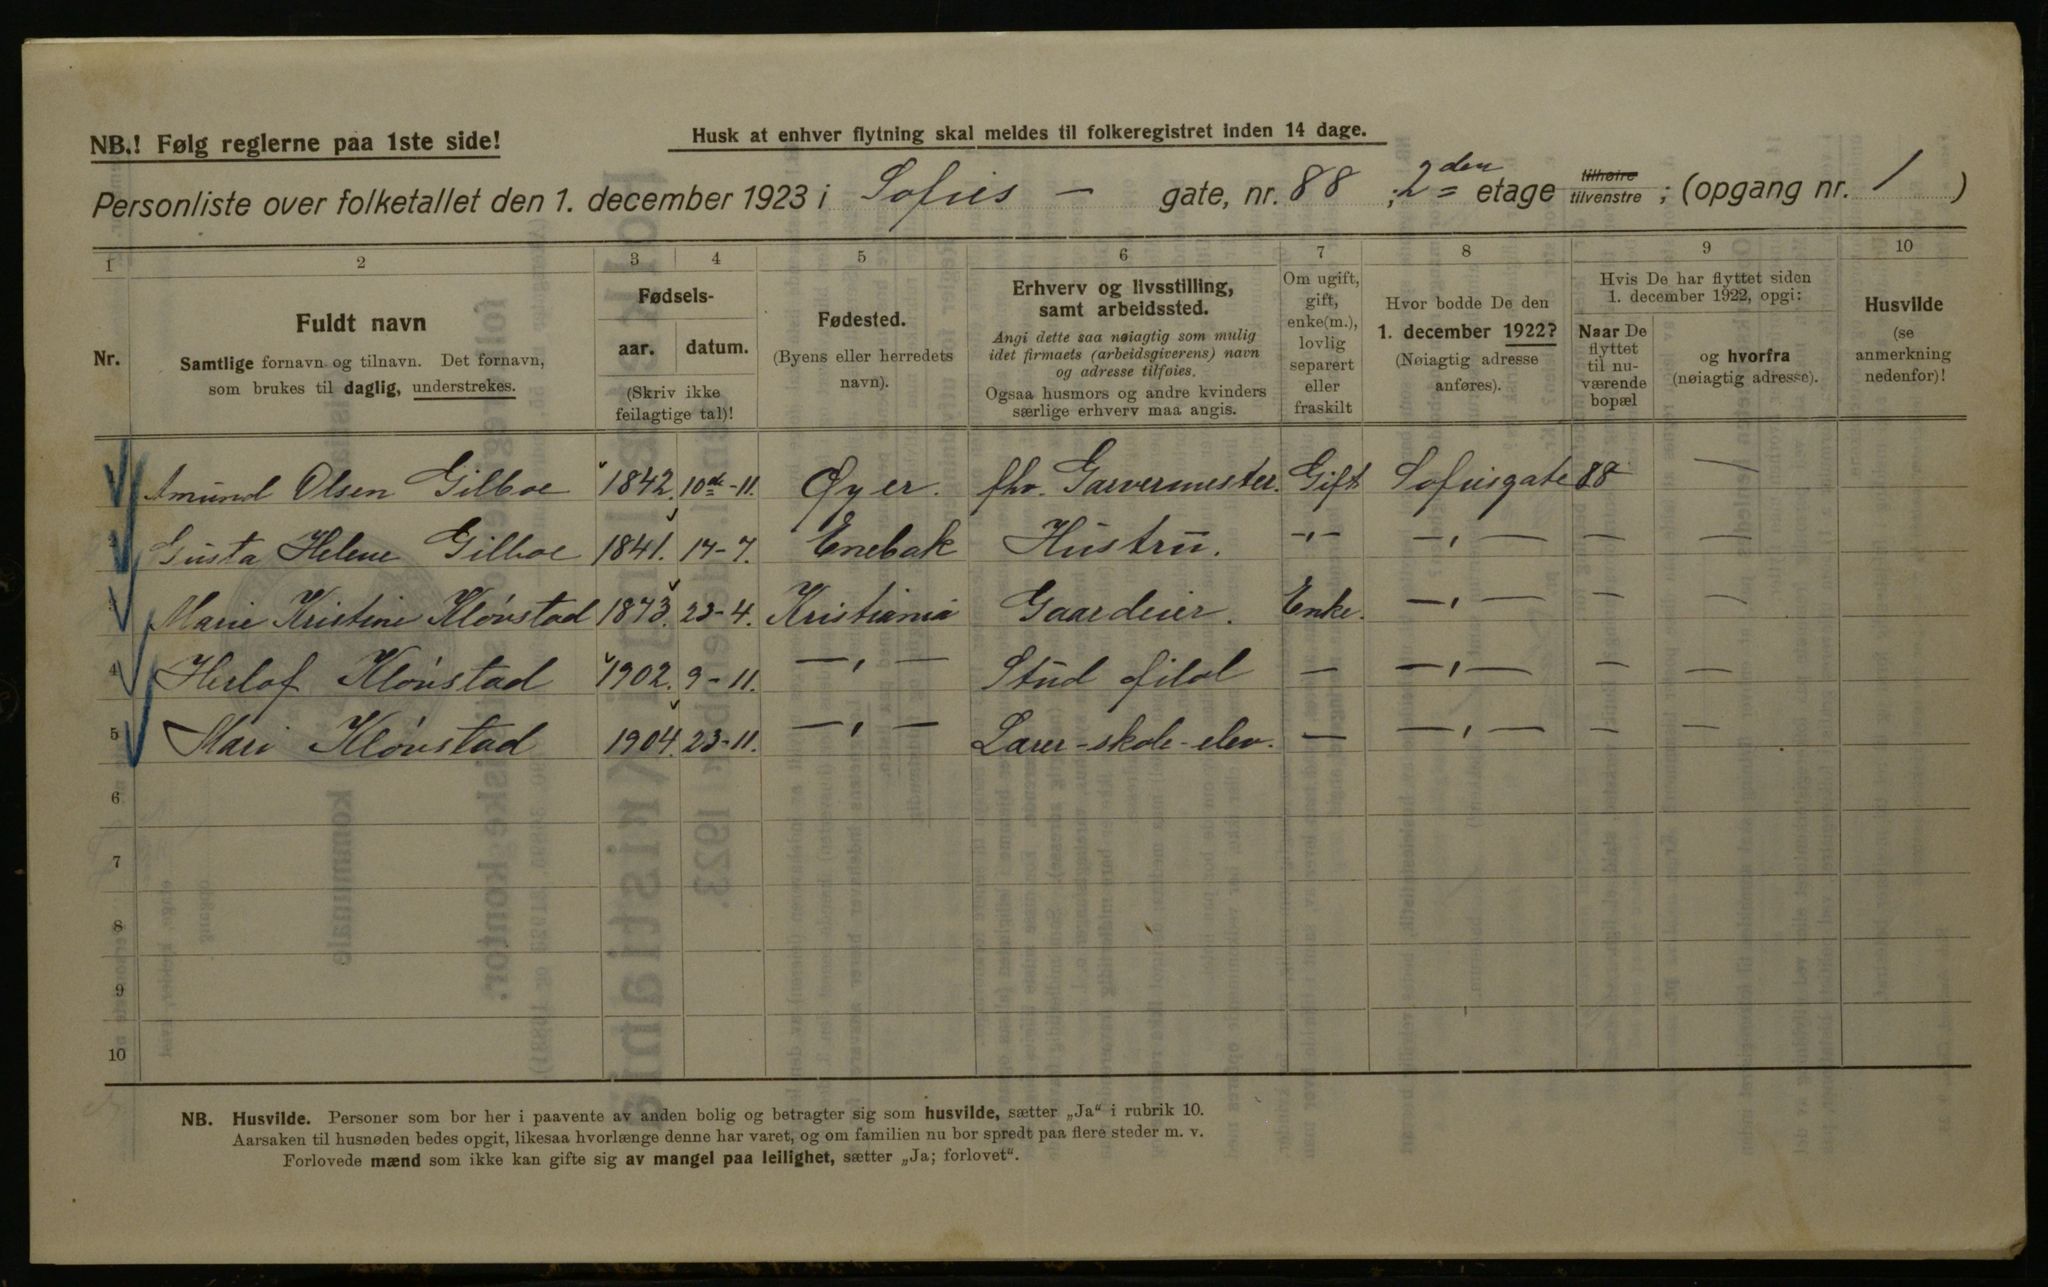 NB.! Følg reglerne paa 1ste side!
Husk at enhver flytning skal meldes til folkeregistret inden 14 dage.
Personliste over folketallet den 1. december 1923 i Sofies — gate, nr. 88 ; 2den etage tilhøire tilvenstre ; (opgang nr. 1 )
1 2 3 4 5 6 7 8 9 10
Nr.
Fuldt navn
Samtlige fornavn og tilnavn. Det fornavn,
som brukes til daglig, understrekes.
Fødsels-
aar. datum.
(Skriv ikke
feilagtige tal)!
Fødested.
(Byens eller herredets
navn).
Erhverv og livsstilling,
samt arbeidssted.
Angi dette saa nøiagtig som mulig
idet firmaets (arbeidsgiverens) navn
og adresse tilføies.
Ogsaa husmors og andre kvinders
særlige erhverv maa angis.
Om ugift,
gift,
enke(m.),
lovlig
separert
eller
fraskilt
Hvor bodde De den
1. december 1922?
(Nøiagtig adresse
anføres).
Hvis De har flyttet siden
1. december 1922, opgi:
Naar De
flyttet
til nu-
værende
bopæl
og hvorfra
(nøiagtig adresse).
Husvilde
(se
anmerkning
nedenfor)!
1 Amund Olsen Gilboe 1842. 10de-11. Øyer. fhv. Garvermester. Gift Sofiesgate 88 —
2 Gusta Helene Gilboe 1841. 17-7. Enebak Hustru. -"- —„— — —
3 Marie Kristine Kløvstad 1873. 23-4. Kristiania Gaardeier. Enke. —„— — —
4 Herlof Kløvstad 1902. 9-11. —„— Stud filol — —„— — —
5 Mari Kløvstad 1904. 23-11. —„— Lærer-skole-elev. — —„— — —
6
7
8
9
10
NB. Husvilde. Personer som bor her i paavente av anden bolig og betragter sig som husvilde, sætter „Ja“ i rubrik 10.
Aarsaken til husnøden bedes opgit, likesaa hvorlænge denne har varet, og om familien nu bor spredt paa flere steder m. v.
Forlovede mænd som ikke kan gifte sig av mangel paa leilighet, sætter „Ja; forlovet“.